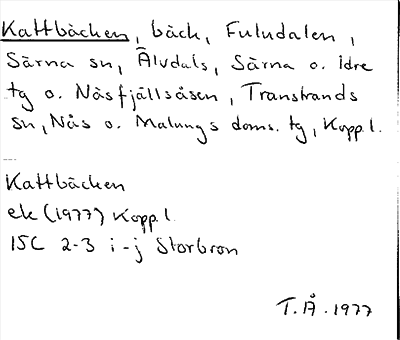 Kattbäcken, bäck, Fuludalen,
Särna sn, Älvdals, Särna o. Idre
tg o. Näsfjällsåsen, Transtrands
sn, Nås o. Malungs doms. tg, Kopp. l.
Kattbäcken
ek (1977) Kopp. l.
15C 2-3 i-j Storbron
T.Å. 1977